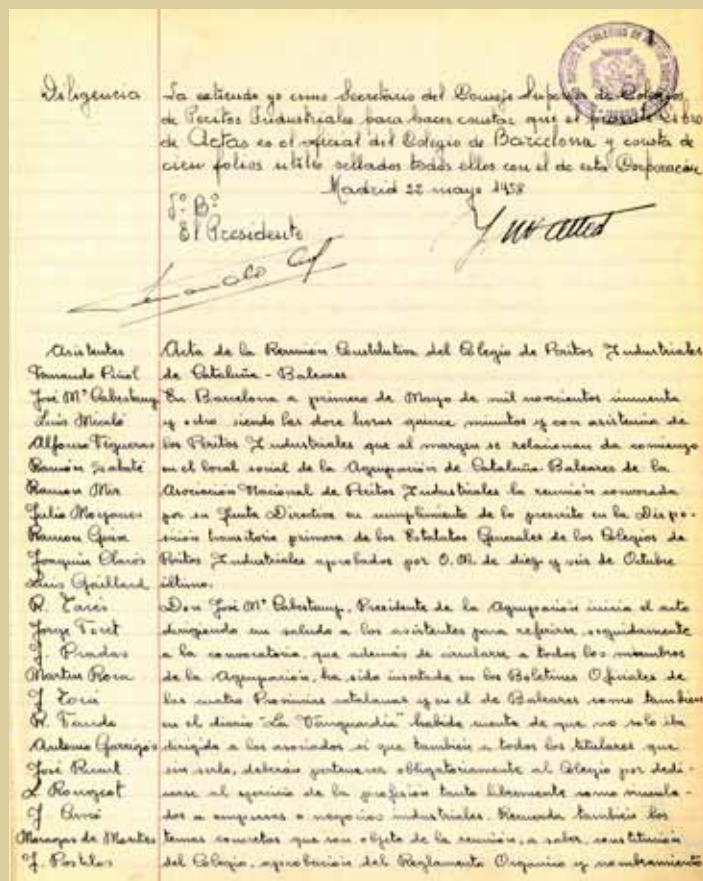 Diligencia
La extiendo yo como Secretario del Consejo Superior de Colegios
de Peritos Industriales para hacer constar que el presente Libro
de Actas es el oficial del Colegio de Barcelona y consta de
cien folios utiles sellados todos ellos con el de esta Corporación
Madrid 22 mayo 1958
Vº Bº
El Presidente
Asistentes
Fernando Piñol
José Mª Cabestany
Luis Micaló
Alfonso Figueras
Ramón
Ramon Mir
Julio Moyanes
Ramon Guix
Joaquin Clarós
Luis Gaillard
R. Tarés
Jorge Toret
J. Pradas
Martin Roca
J.
R.
Antonio Garrigós
José
L.
J.
Moragas de Montes
J.
Acta de la Reunion Constitutiva del Colegio de Peritos Industriales
de Cataluña - Baleares
En Barcelona a primero de Mayo de mil novecientos cincuenta
y ocho siendo las doce horas quince minutos y con asistencia de
los Peritos Industriales que al margen se relacionan da comienzo
en el local social de la Agrupación de Cataluña Baleares de la
Asociación Nacional de Peritos Industriales la reunión convocada
por su Junta Directiva en cumplimiento de lo prescrito en la Dispo-
sición transitoria primera de los Estatutos Generales de los Colegios de
Peritos Industriales aprobados por O.M. de diez y seis de Octubre
último.
Don José Mª Cabestany, Presidente de la Agrupación inicia el acto
dirigiendo un saludo a los asistentes para referirse seguidamente
a la convocatoria, que además de circularse a todos los miembros
de la Agrupación, ha sido insertada en los Boletines Oficiales de
las cuatro Provincias catalanas y en el de Baleares como tambien
en el diario "La Vanguardia" habida cuenta de que no solo iba
dirigida a los asociados si que tambien a todos los titulares que
sin serlo, deberán pertenecer obligatoriamente al Colegio por dedi-
carse al ejercicio de la profesión tanto libremente como vincula-
dos a empresas o negocios industriales. Recuerda tambien los
temas concretos que son objeto de la reunión, a saber, constitución
del Colegio, aprobación del Reglamento Organico y nombramiento